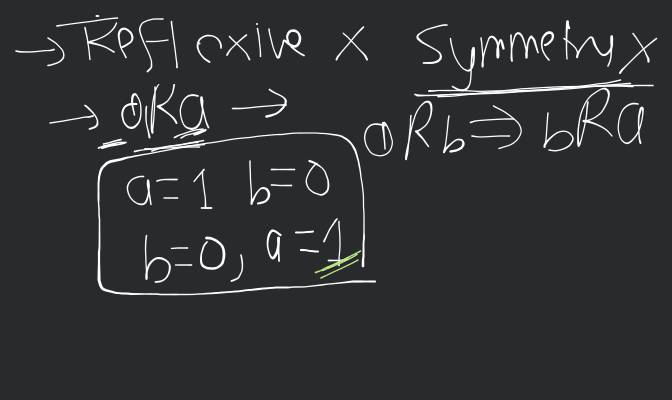 → Reflexive X Symmetry X
→ aRa →
aRb ⇒ bRa
a=1 b=0
b=0, a=1